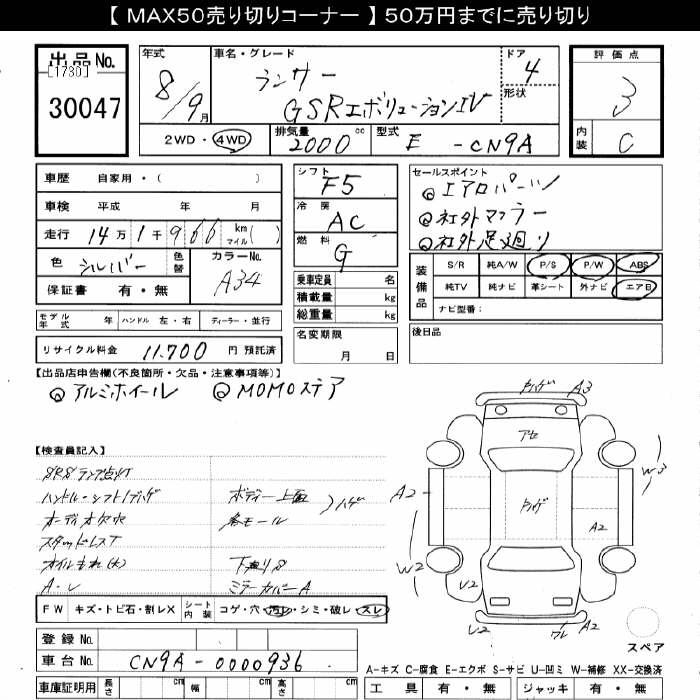 【 MAX50売り切りコーナー 】50万円までに売り切り
出品No.
[1730]
30047
年式
8/9月
車名・グレード
ランサー
GSRエボリューションIV
ドア
4
形状
評価点
3
内装 C
2WD・4WD
排気量 2000 cc
型式 E - CN9A
車歴 自家用・( )
車検 平成 年 月
走行 14万1千966 km マイル( )
色 シルバー 色替 カラーNo. A34
保証書 有・無
シフト F5
冷房 AC
燃料 G
乗車定員 名
積載量 kg
総重量 kg
セールスポイント
◎エアロパーツ
◎社外マフラー
◎社外足廻り
装備品
S/R 純A/W P/S P/W ABS
純TV 純ナビ 革シート 外ナビ エアB
ナビ型番:
モデル年式 年 ハンドル 左・右 ディーラー・並行
名変期限 月 日
後日品
リサイクル料金 11,700 円 預託済
【出品店申告欄(不良箇所・欠品・注意事項等)】
◎アルミホイール ◎MOMOステア
【検査員記入】
SRSランプ点灯
ハンドル・シフトノブハゲ ボディー上面 ハゲ
オーディオ欠穴 各モール
スタッドレスT
オイルもれ(大) 下廻りS
A・L ミラーカバーA
FW キズ・トビ石・割レX シート内装 コゲ・穴・汚レ・シミ・破レ・スレ
ハゲ A3
アセ
W3
A2
ハゲ
A2
W2
U2
U2
ワレ A2
スペア
登録 No.
車台 No. CN9A-0000936
A-キズ C-腐食 E-エクボ S-サビ U-凹ミ W-補修 XX-交換済
車庫証明用 長さ cm 幅 cm 高さ cm
工具 有・無 ジャッキ 有・無